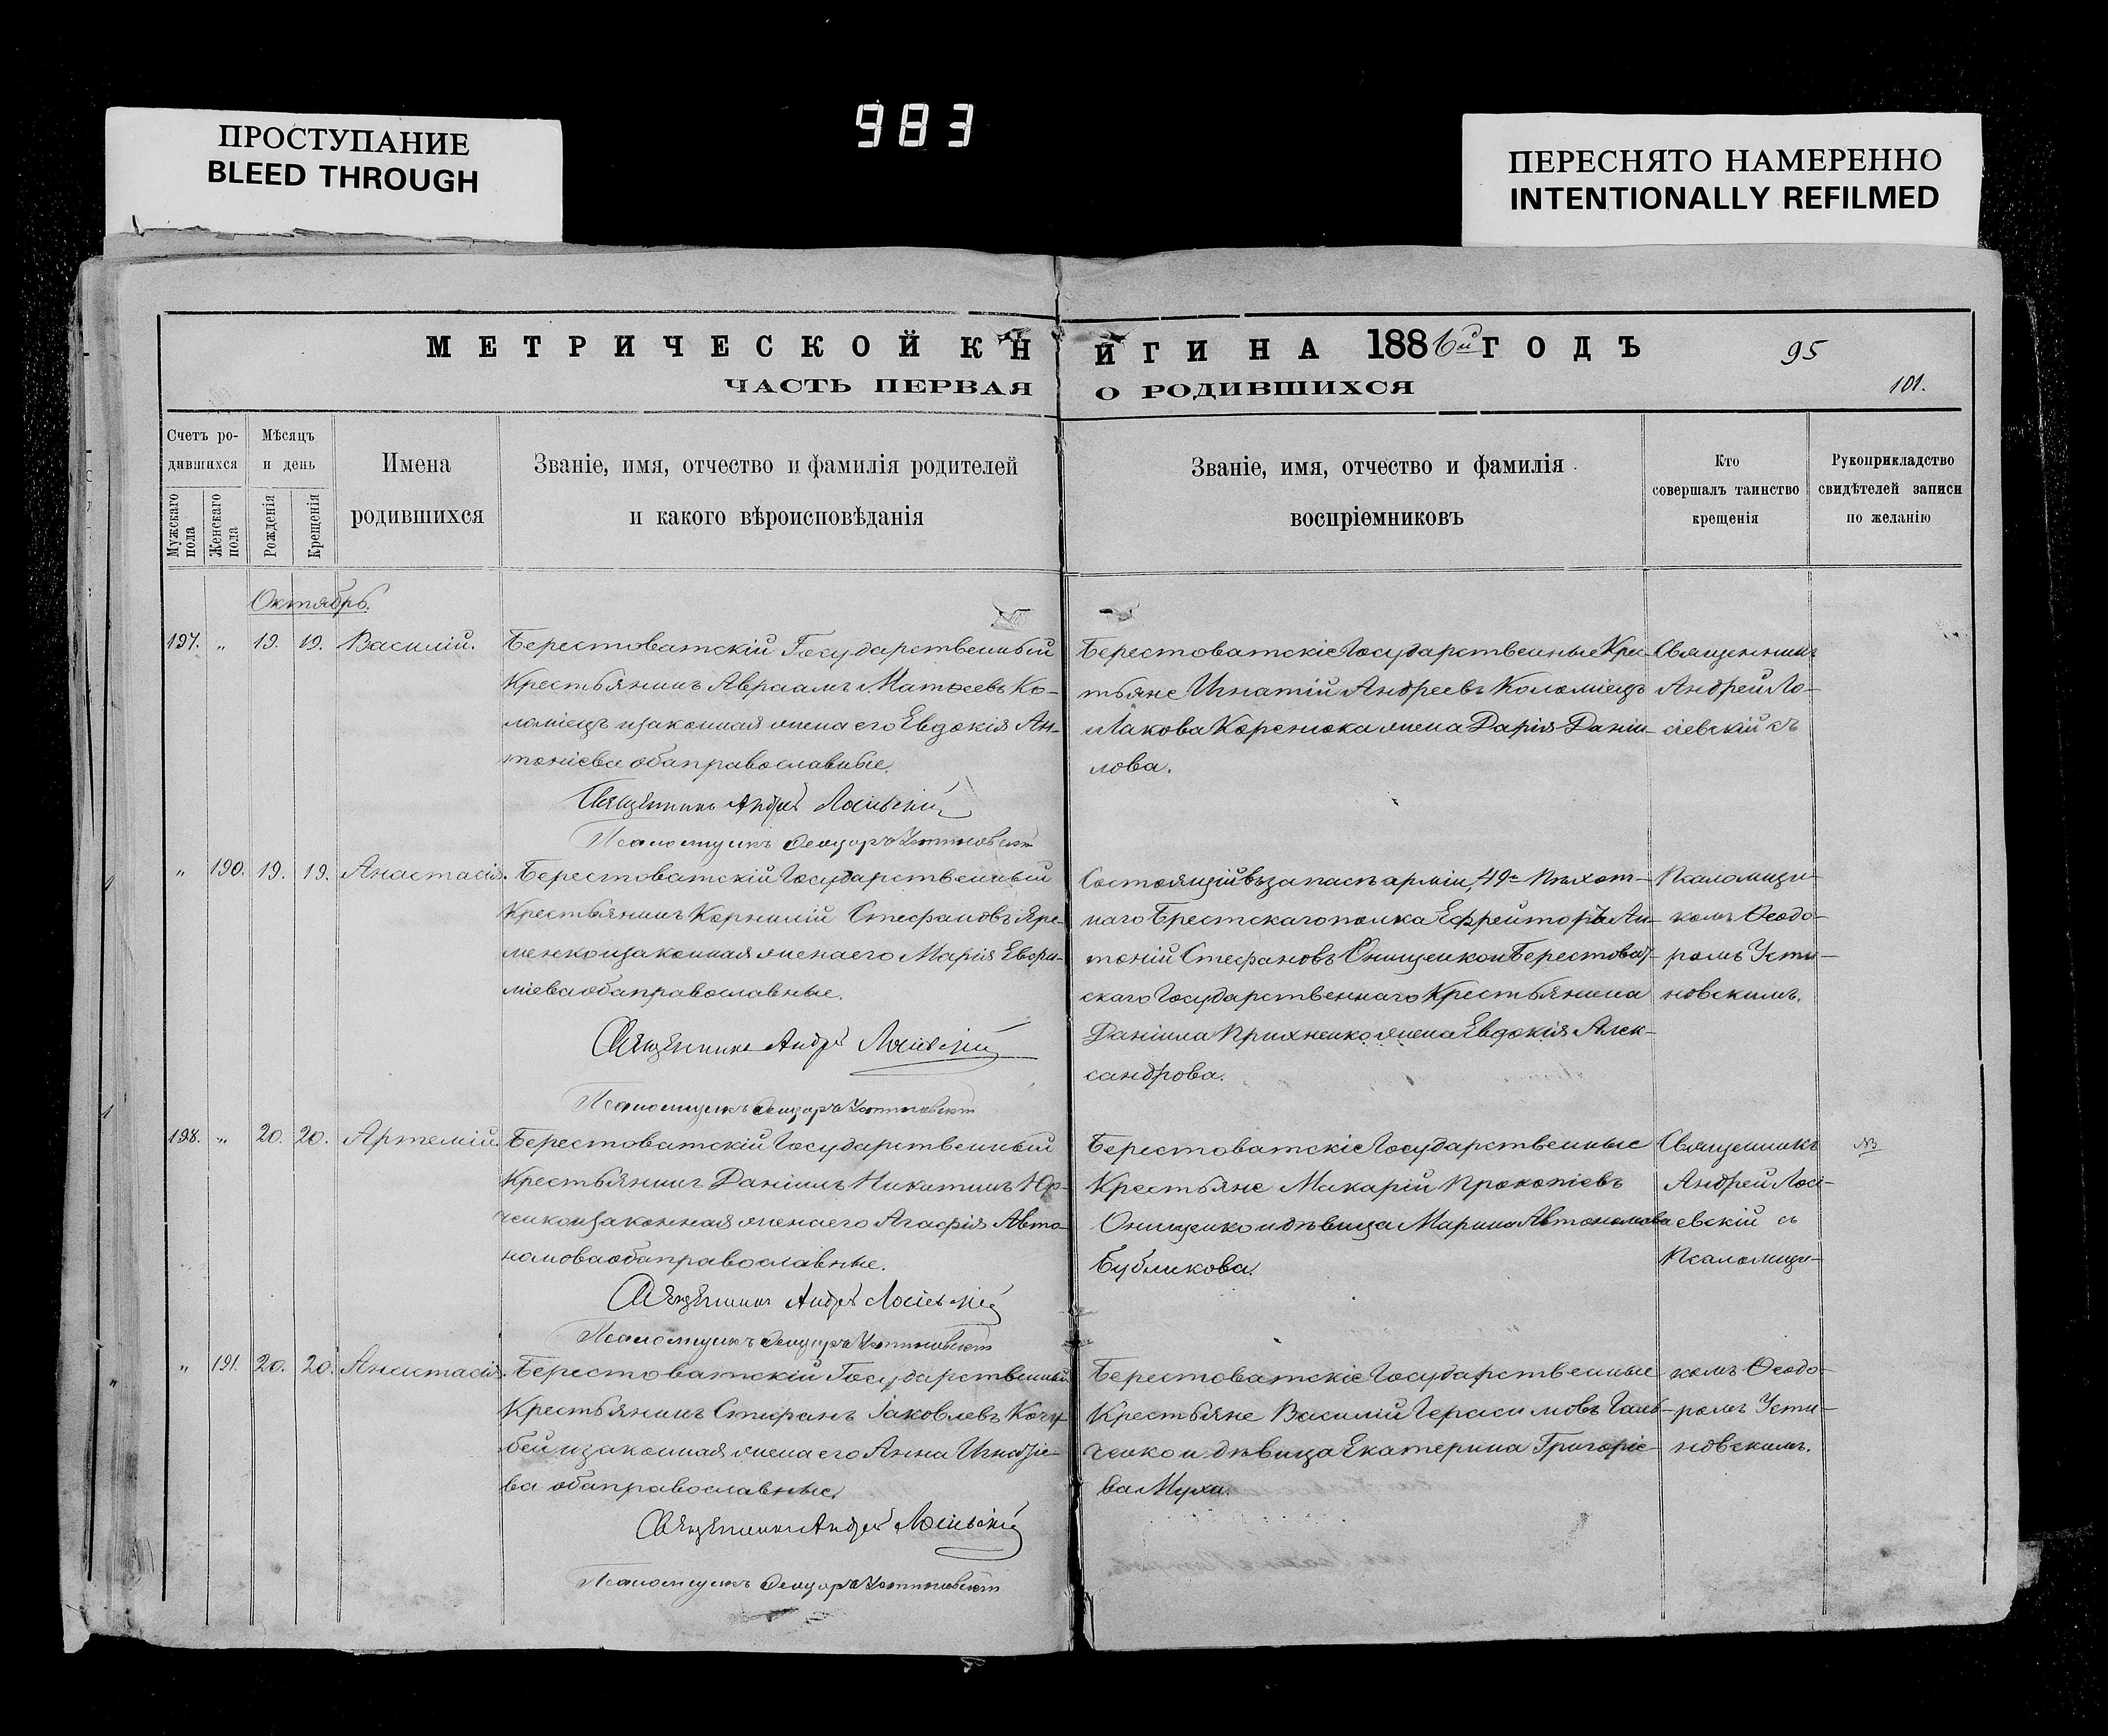 ПРОСТУПАНИЕ
BLEED THROUGH
983
ПЕРЕСНЯТО НАМЕРЕННО
INTENTIONALLY REFILMED
МЕТРИЧЕСКОЙ КНИГИ НА 1886й ГОДЪ
95
ЧАСТЬ ПЕРВАЯ О РОДИВШИХСЯ
101.
Счетъ ро-
дившихся
Мужскаго пола
Женскаго пола
Мѣсяцъ
и день
Рожденія
Крещенія
Имена
родившихся
Званіе, имя, отчество и фамилія родителей
и какого вѣроисповѣданія
Званіе, имя, отчество и фамилія
воспріемниковъ
Кто
совершалъ таинство
крещенія
Рукоприкладство
свидѣтелей записи
по желанію
Октябрь.
197. „ 19. 19. Василій.
Берестоватскій Государственный
Крестьянинъ Авраамъ Матөеевъ Ко-
ломіецъ и законная жена его Евдокія Ан-
тоніева оба православные.
Священникъ Андрей Лосіевскій
Псаломщикъ Өеодоръ Устиновскій
Берестоватскіе Государственные Крес-
тьяне Игнатій Андреевъ Коломіецъ
Іакова Коренюка жена Дарія Даніи-
лова.
Священникъ
Андрей Ло-
сіевскій съ
„ 190. 19. 19. Анастасія.
Берестоватскій Государственный
Крестьянинъ Корнилій Стефановъ Яре-
менко и законная жена его Марія Евфи-
міева оба православные.
Священникъ Андрей Лосіевскій
Псаломщикъ Өеодоръ Устиновскій
Состоящій въ запасѣ арміи, 49го Пѣхот-
наго Брестскаго полка Ефрейторъ Ан-
тоній Стефановъ Онищенко и Берестоват-
скаго Государственнаго Крестьянина
Даніила Прихненко жена Евдокія Алек-
сандрова.
Псаломщи-
комъ Өеодо-
ромъ Усти-
новскимъ.
198. „ 20. 20. Артемій.
Берестоватскій Государственный
Крестьянинъ Даніилъ Никитинъ Юр-
ченко и законная жена его Агафія Авто-
номова оба православные.
Священникъ Андрей Лосіевскій
Псаломщикъ Өеодоръ Устиновскій
Берестоватскіе Государственные
Крестьяне Макарій Прокопіевъ
Онищенко и дѣвица Марина Автономова
Бубликова.
Священникъ
Андрей Лосі-
евскій съ
Псаломщи-
„ 191. 20. 20. Анастасія.
Берестоватскій Государственный
Крестьянинъ Стефанъ Іаковлевъ Кочу-
бей и законная жена его Анна Игнатіе-
ва оба православные.
Священникъ Андрей Лосіевскій
Псаломщикъ Өеодоръ Устиновскій
Берестоватскіе Государственные
Крестьяне Василій Герасимовъ
ченко и дѣвица Екатерина Григоріе-
ва Муха.
комъ Өеодо-
ромъ Усти-
новскимъ.